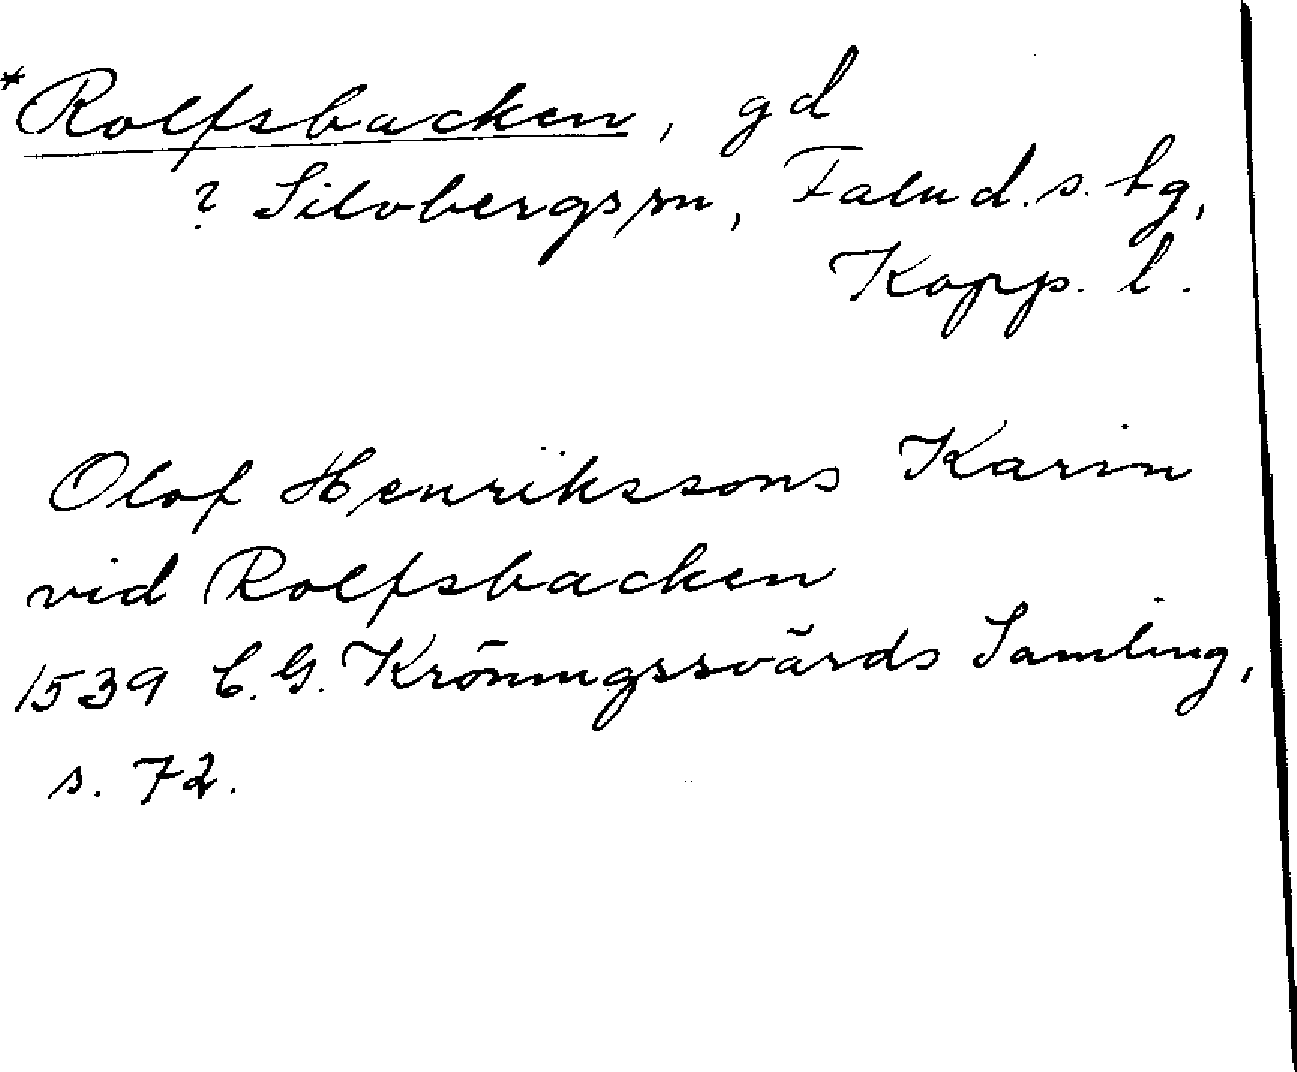 *Rolfsbacken, gd
? Silvbergs sn, Falu d.s. hg,
Kopp. l.
Olof Henrikssons Karin
vid Rolfsbacken
1539 C. G. Kröningssvärds Samling,
s. 72.